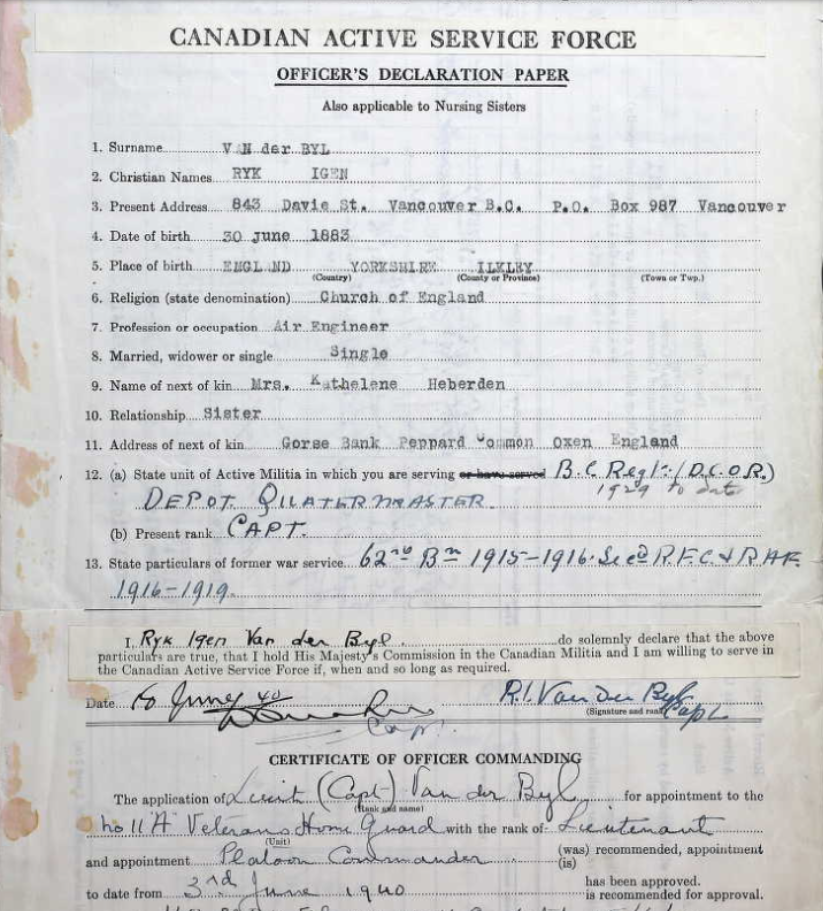 CANADIAN ACTIVE SERVICE FORCE
OFFICER'S DECLARATION PAPER
Also applicable to Nursing Sisters
1. Surname VAN der BYL
2. Christian Names RYK IGEN
3. Present Address 843 Davie St. Vancouver B.C. P.O. Box 987 Vancouver
4. Date of birth 30 June 1883
5. Place of birth ENGLAND YORKSHIRE ILKLEY
(Country) (County or Province) (Town or Twp.)
6. Religion (state denomination) Church of England
7. Profession or occupation Air Engineer
8. Married, widower or single Single
9. Name of next of kin Mrs. Kathelene Heberden
10. Relationship Sister
11. Address of next of kin Gorse Bank Peppard Common Oxen England
12. (a) State unit of Active Militia in which you are serving or have served B.C. Regt. (D.C.O.R.)
1929 to date
DEPOT QUATERMASTER.
(b) Present rank CAPT.
13. State particulars of former war service 62nd Bn 1915-1916. Secd R.F.C. & RAF.
1916-1919.
I, Ryk Igen Van der Byl do solemnly declare that the above
particulars are true, that I hold His Majesty's Commission in the Canadian Militia and I am willing to serve in
the Canadian Active Service Force if, when and so long as required.
Date 10 June 40 R.I. Van Der Byl
(Signature and rank) Capt
Capt.
CERTIFICATE OF OFFICER COMMANDING
The application of Lieut (Capt) Van der Byl for appointment to the
(Rank and name)
No 11 A Veterans Home Guard with the rank of Lieutenant
(Unit)
and appointment Platoon Commander (was) recommended, appointment
(is)
to date from 3rd June 1940 has been approved.
is recommended for approval.